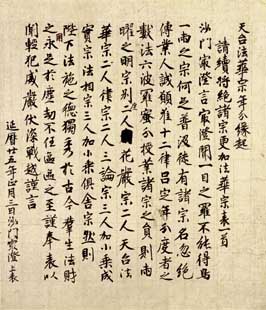 天台法華宗年分縁起
請續將絶諸宗更加法華宗表一首
沙門最澄言最澄聞一目之羅不能得鳥
一兩之宗何足普汲徒有諸宗名忽絶
傳業人誠願准十二律呂定年分度者之
數法六波羅蜜分授業諸宗之員則兩
曜之明宗別度二人花嚴宗二人天台法
華宗二人律宗二人三論宗三人加小乘成
實宗法相宗三人加小乘俱舍宗然則
陛下法施之德獨秀於古今群生法財
之用永足於塵劫不任區區之至謹奉表以
聞輕犯威嚴伏深戰越謹言
延曆廿五年正月三日沙門最澄上表